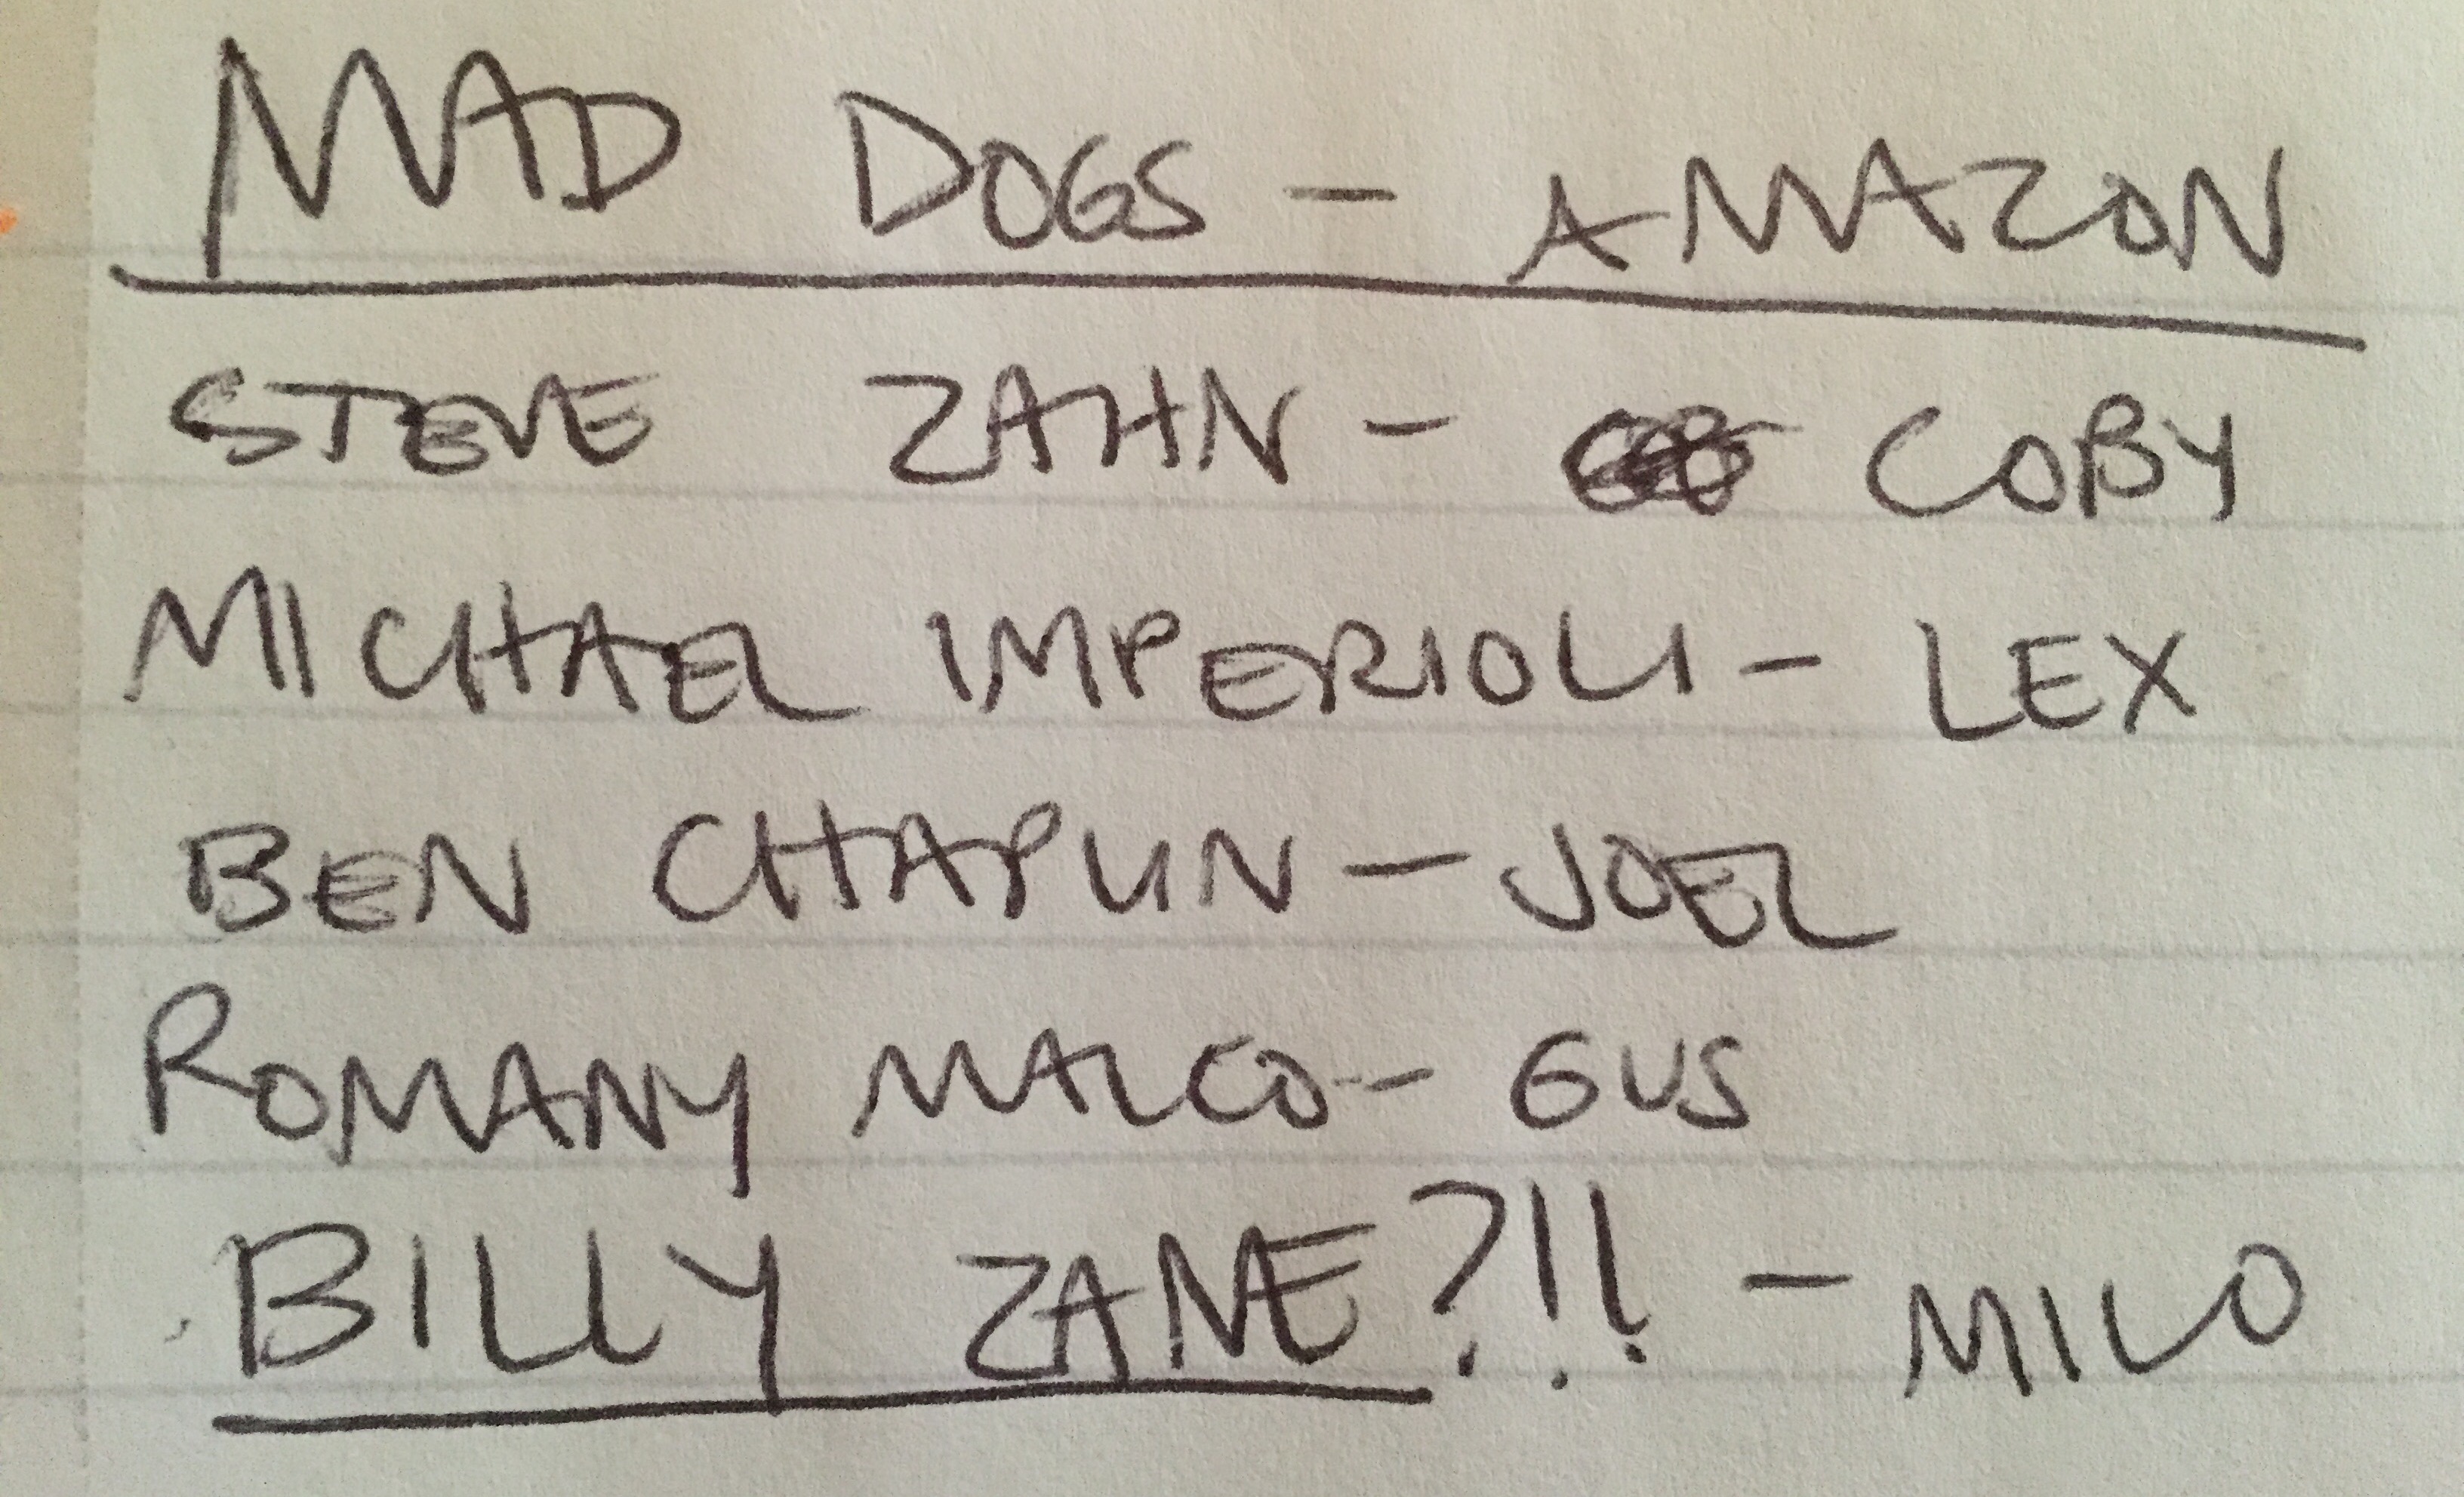 MAD DOGS - AMAZON
STEVE ZAHN - COBY
MICHAEL IMPERIOLI - LEX
BEN CHAPLIN - JOEL
ROMANY MALCO - GUS
BILLY ZANE?!! - MILO